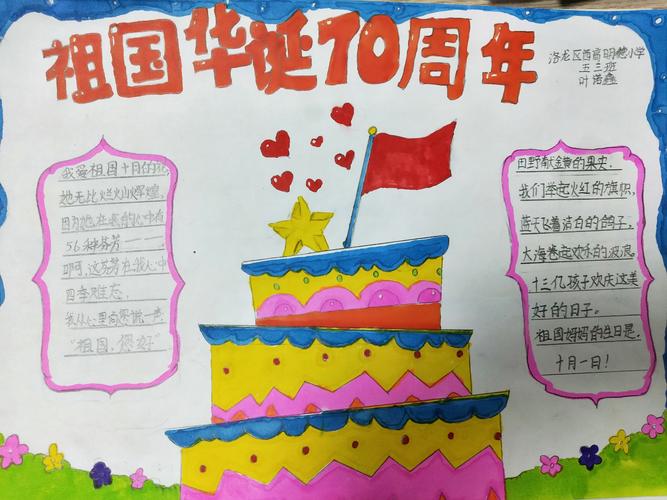 祖国华诞70周年
洛龙区西高明德小学
五三班
叶诺鑫
我爱祖国十月的花
她无比灿烂辉煌
因为她在我的心中有
56种芬芳
啊,这芬芳在我心中
四季难忘
我从心里向您说一声
"祖国,您好"
田野献金黄的果实.
我们举起火红的旗帜,
蓝天飞着洁白的鸽子,
大海卷起欢乐的波浪.
十三亿孩子欢庆这美
好的日子。
祖国妈妈的生日是.
十月一日!